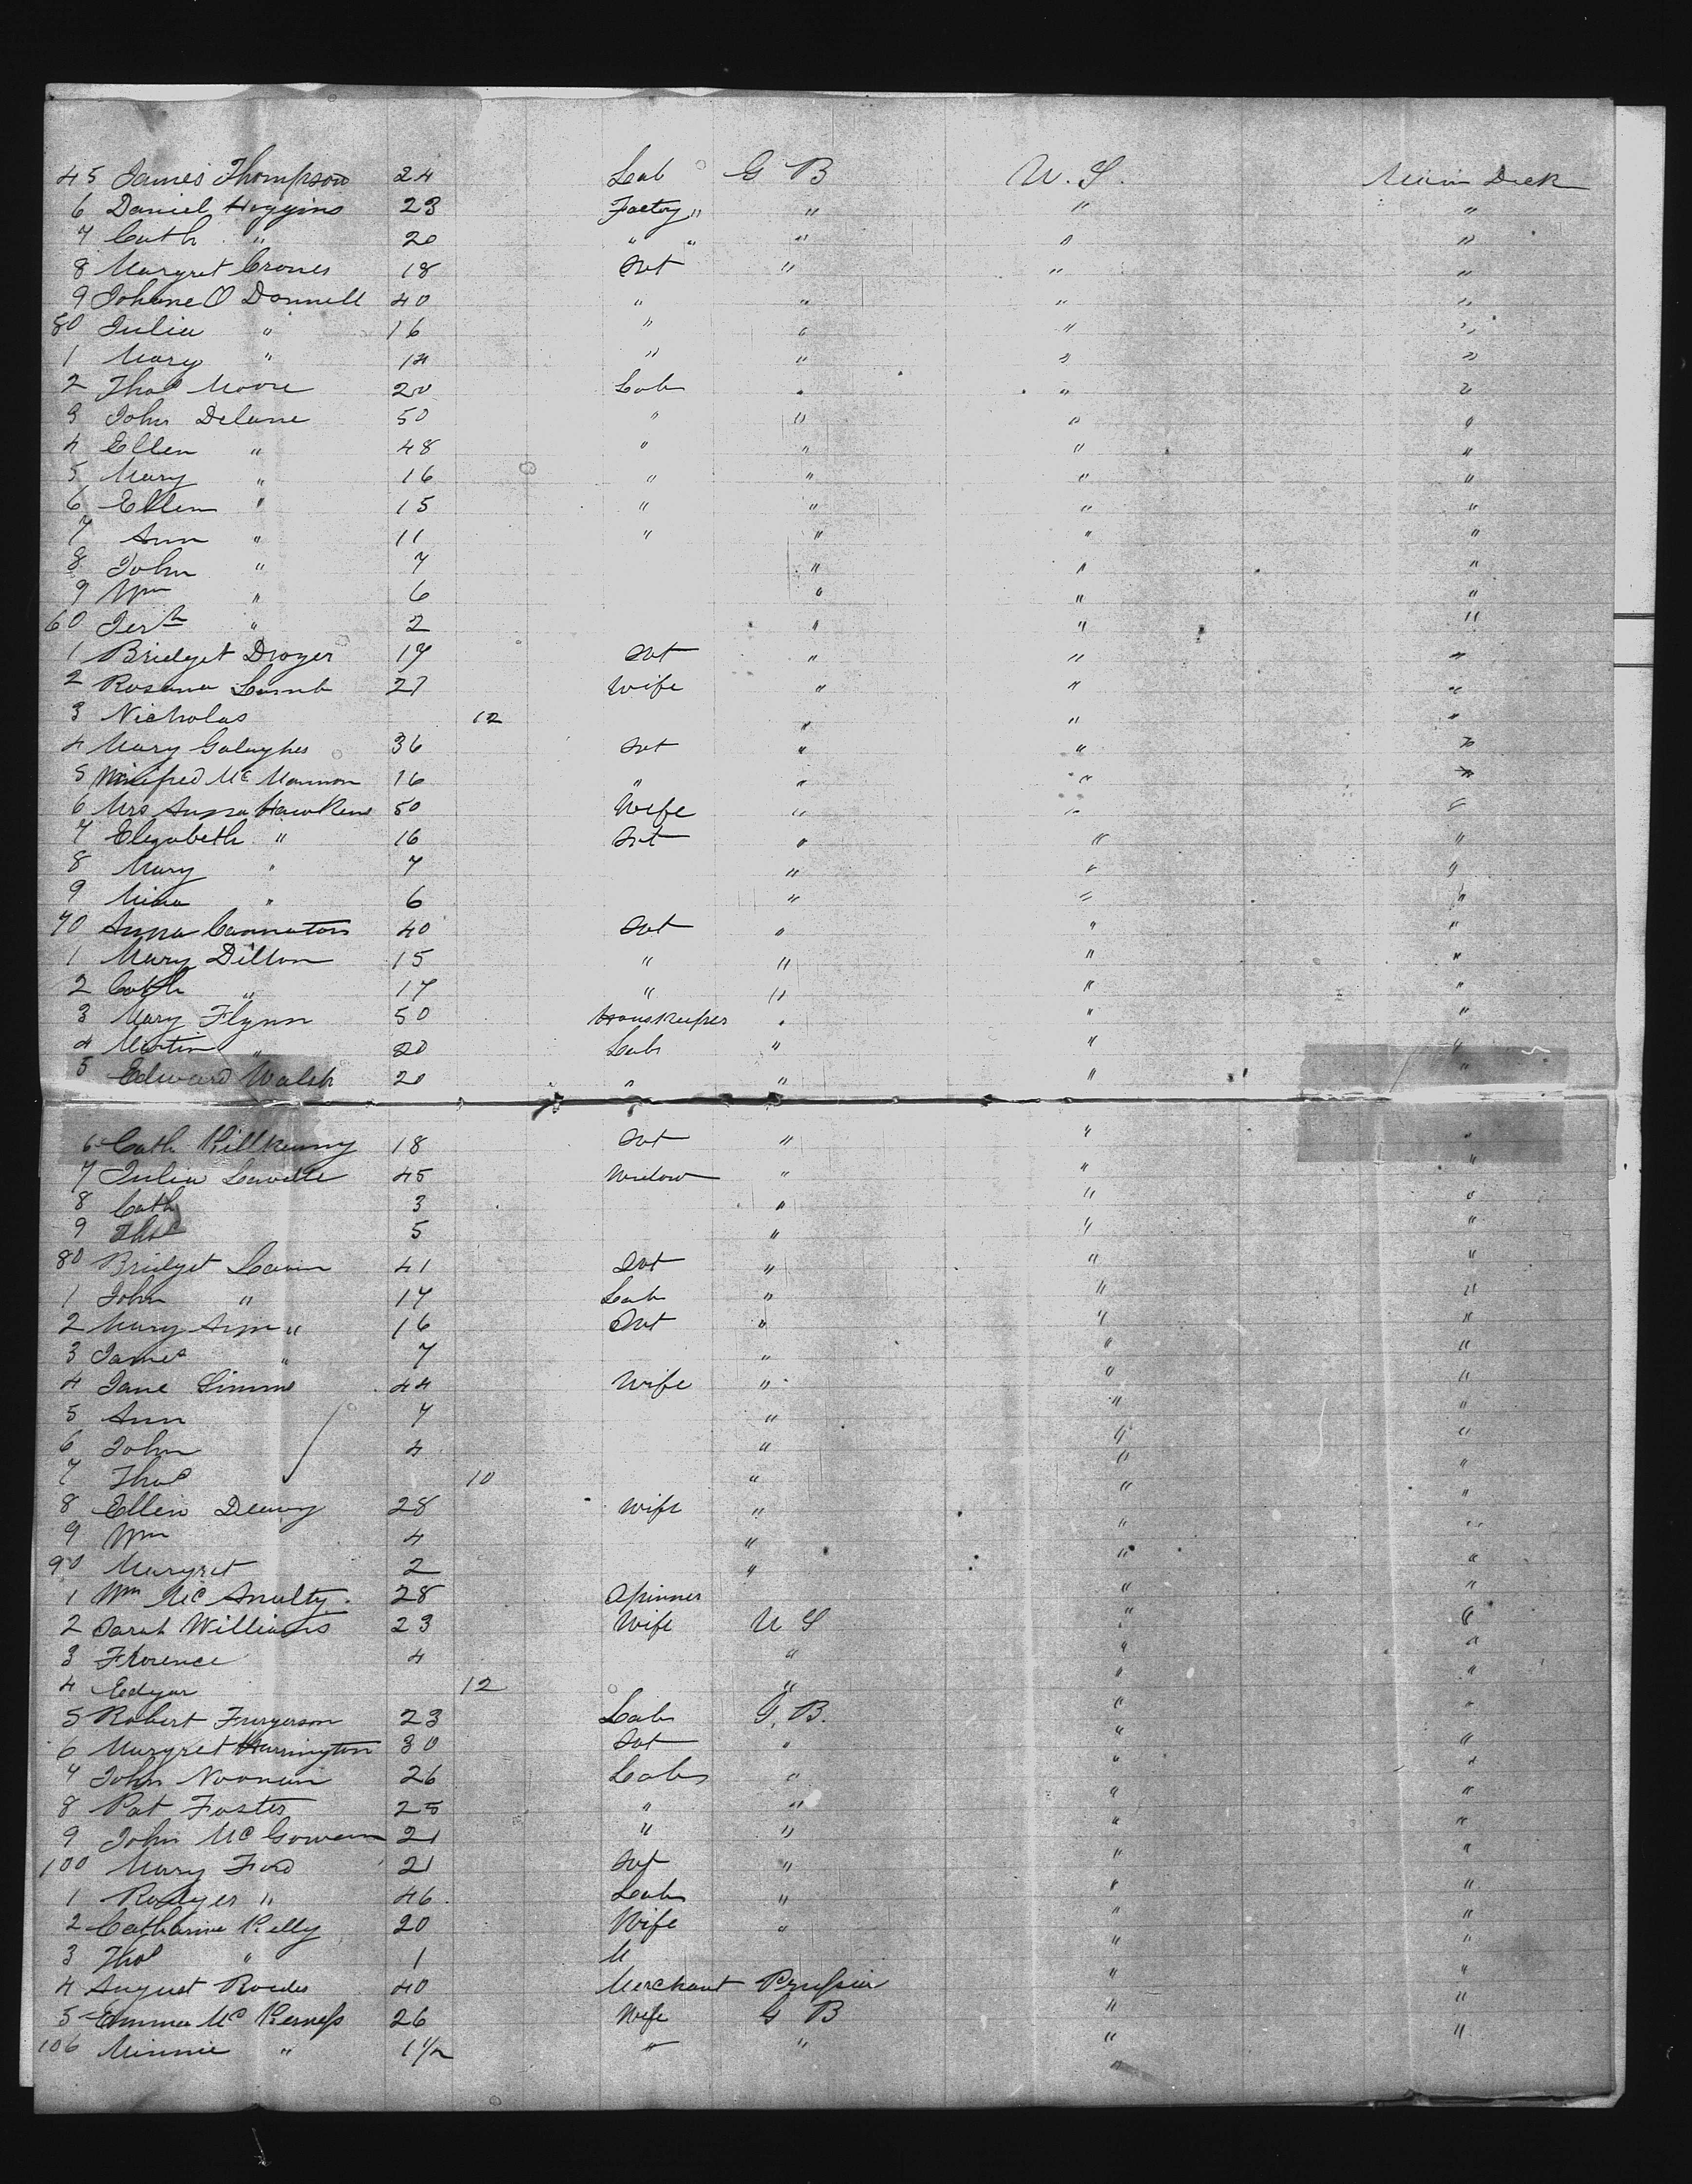 45 James Thompson 24 Lab G B U. S. Main Deck
6 Daniel Hoggins 23 Factory " " " "
7 Cath " 20 " " " " "
8 Margret Crones 18 Svt " " "
9 Johane O Donnell 40 " " " "
50 Julia " 16 " " " "
1 Mary " 14 " " " "
2 Thos Moore 20 Lab " " "
3 John Delane 50 " " " "
4 Ellen " 48 " " " "
5 Mary " 16 " " " "
6 Ellen " 15 " " " "
7 Ann " 11 " " " "
8 John " 7 " " "
9 Wm " 6 " " "
60 " 2 " " "
1 Bridget Dwyer 19 Svt " " "
2 Rosana Lamb 27 Wife " " "
3 Nicholas 12 " " "
4 Mary Galaghes 36 Svt " " "
5 Winifred Mc Mannon 16 " " " "
6 Mrs Anna Hawkins 50 Wife " " "
7 Elizabeth " 16 Svt " " "
8 Mary " 7 " " "
9 Mina " 6 " " "
70 Anna Cannaton 40 Svt " " "
1 Mary Dillon 15 " " " "
2 Cath " 17 " " " "
3 Mary Flynn 50 Houskeeper " " "
4 Martin " 20 Lab " " "
5 Edward Walsh 20 " " " "
6 Cath Killkenny 18 Svt " " "
7 Julia Lavelle 45 Widow " " "
8 Cath 3 " " "
9 Thos 5 " " "
80 Bridget Lavin 41 Svt " " "
1 John " 17 Lab " " "
2 Mary Ann " 16 Svt " " "
3 James " 7 " " "
4 Jane Simms 44 Wife " " "
5 Ann 7 " " "
6 John 4 " " "
7 Thos 10 " " "
8 Ellen Deany 28 Wife " " "
9 Wm 4 " " "
90 Margret 2 " " "
1 Wm Mc Anulty 28 Spinner " "
2 Sarah Williams 23 Wife U S " "
3 Florence 4 " " "
4 Edgar 12 " " "
5 Robert Furgerson 23 Lab G. B. " "
6 Margret Harrington 30 Svt " " "
7 John Noonan 26 Lab " " "
8 Pat Foster 25 " " " "
9 John Mc Gowean 21 " " " "
100 Mary Ford 21 Svt " " "
1 Rodger " 46 Lab " " "
2 Catharine Kelly 20 Wife " " "
3 Thos " 1 M " "
4 August Roedes 40 Merchant Prussia " "
5 Emma Mc Kerness 26 Wife G B " "
106 Minnie " 1 1/2 " " " "
"